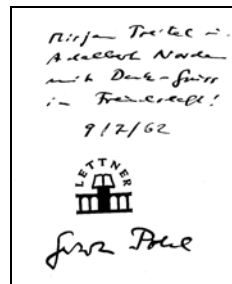 Mirjam Treitel u.
Adalbert Norden
mit Dank-Gruss
in Freundschaft!
9/2/62
LETTNER